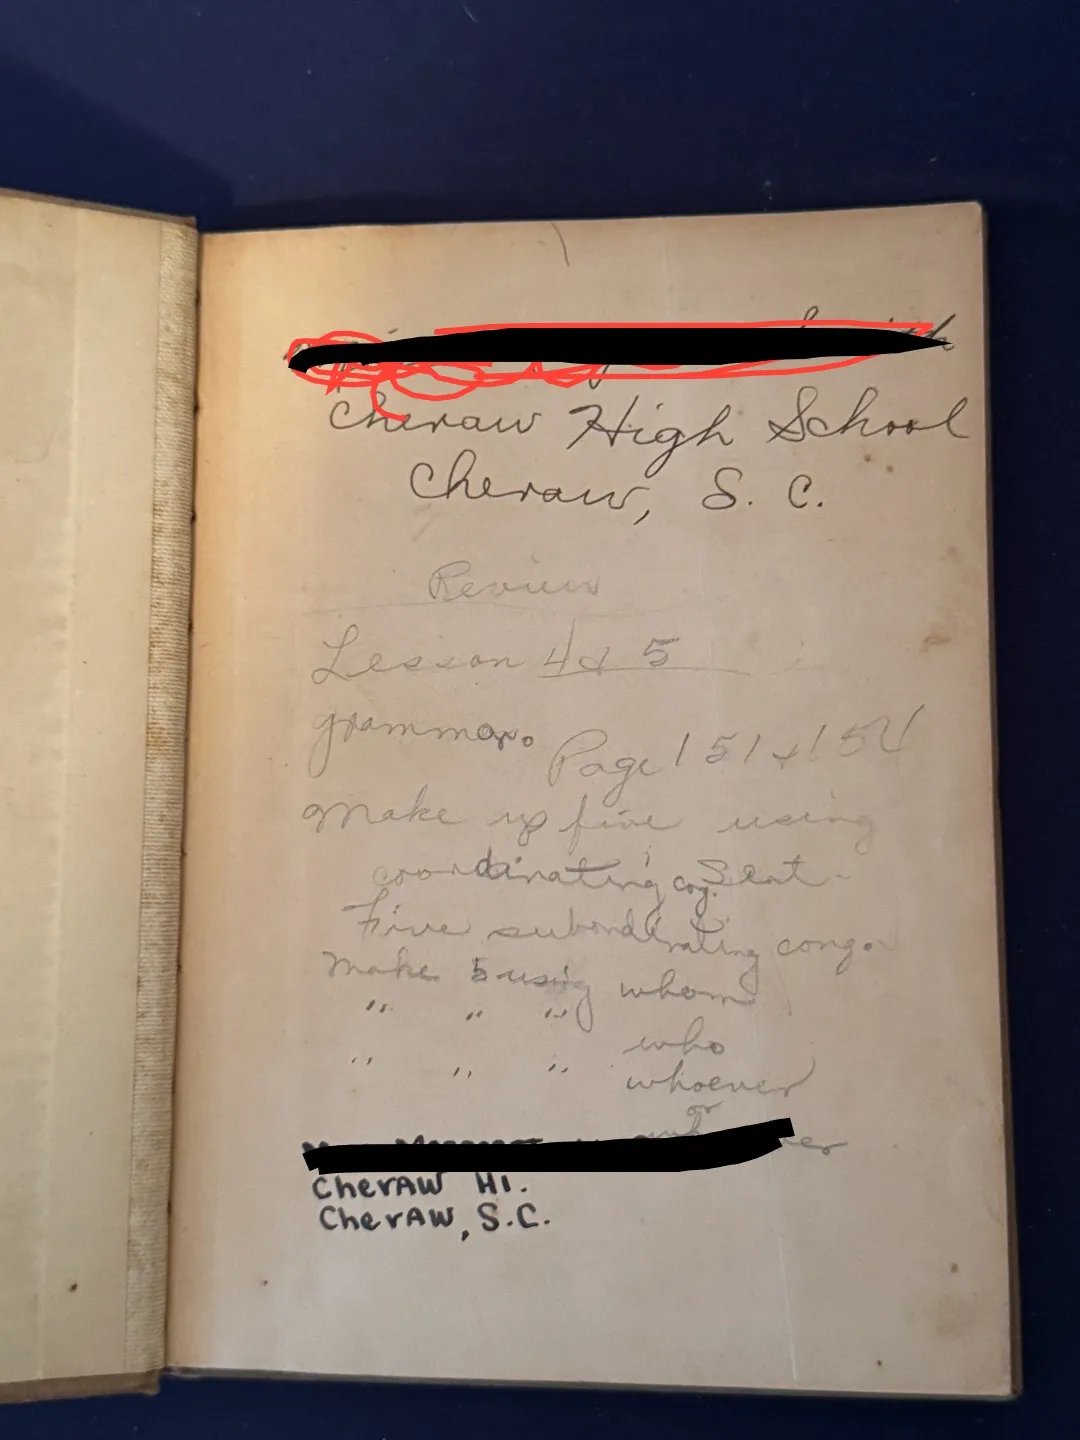 Cheraw High School
Cheraw, S. C.
Review
Lesson 4 & 5
grammar.
Page 151 & 154
Make up five using
coordinating conj. Sent.
Five subordinating conj.
Make 5 using whom
" " " who
" " " whoever
or
Cheraw Hi.
Cheraw, S.C.